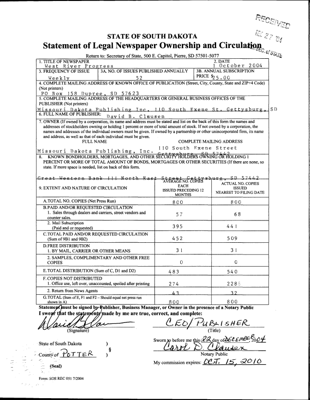 RECEIVED
STATE OF SOUTH DAKOTA
Statement of Legal Newspaper Ownership and Circulation
Return to: Secretary of State, 500 E. Capitol, Pierre, SD 57501-5077
1. TITLE OF NEWSPAPER
West River Progress
2. DATE
1 October 2004
3. FREQUENCY OF ISSUE
Weekly
3A. NO. OF ISSUES PUBLISHED ANNUALLY
52
3B. ANNUAL SUBSCRIPTION
PRICE
4. COMPLETE MAILING ADDRESS OF KNOWN OFFICE OF PUBLICATION (Street, City, County, State and ZIP+4 Code)
(Not printers)
PO Box 159 Dupree, SD 57623
5. COMPLETE MAILING ADDRESS OF THE HEADQUARTERS OR GENERAL BUSINESS OFFICES OF THE
PUBLISHER (Not printers)
Missouri Dakota Publishing, Inc. 110 South Exene St. Gettysburg, SD
6. FULL NAME OF PUBLISHER:
David B. Clausen
7. OWNER (If owned by a corporation, its name and address must be stated and list on the back of this form the names and
addresses of stockholders owning or holding 1 percent or more of total amount of stock. If not owned by a corporation, the
names and addresses of the individual owners must be given. If owned by a partnership or other unincorporated firm, its name
and address, as well as that of each individual must be given.
FULL NAME
COMPLETE MAILING ADDRESS
Missouri Dakota Publishing, Inc.
110 South Exene Street
8. KNOWN BONDHOLDERS, MORTGAGES, AND OTHER SECURITY HOLDERS OWNING OR HOLDING 1
PERCENT OR MORE OF TOTAL AMOUNT OF BONDS, MORTGAGES OR OTHER SECURITIES (If there are none, so
state. If more space is needed, list on back of this form.
Great Western Bank
9. EXTENT AND NATURE OF CIRCULATION
AVERAGE NO. COPIES
EACH
ISSUES PRECEDING 12
MONTHS
ACTUAL NO. COPIES
ISSUED
NEAREST TO FILING DATE
A. TOTAL NO. COPIES (Net Press Run)
800
800
B. PAID AND/OR REQUESTED CIRCULATION
1. Sales through dealers and carriers, street vendors and
counter sales.
57
68
2. Mail Subscription
(Paid and or requested)
395
441
C. TOTAL PAID AND/OR REQUESTED CIRCULATION
(Sum of 9B1 and 9B2)
452
509
D. FREE DISTRIBUTION
1. BY MAIL, CARRIER OR OTHER MEANS
31
31
2. SAMPLES, COMPLIMENTARY AND OTHER FREE
COPIES
0
0
E. TOTAL DISTRIBUTION (Sum of C, D1 and D2)
483
540
F. COPIES NOT DISTRIBUTED
1. Office use, left over, unaccounted, spoiled after printing
274
228
2. Return from News Agents
43
32
G. TOTAL (Sum of E, F1 and F2 – Should equal net press run
shown in A)
800
800
Statement must be signed by Publisher, Business Manager, or Owner in the presence of a Notary Public
I swear that the statements made by me are true, correct, and complete:
CEO/PUBLISHER
(Signature)
(Title)
State of South Dakota )
§
County of POTTER )
(Seal)
Sworn to before me this 22 day of DECEMBER, 04
Carol D. Clausen
Notary Public
My commission expires: OCT. 15, 2010